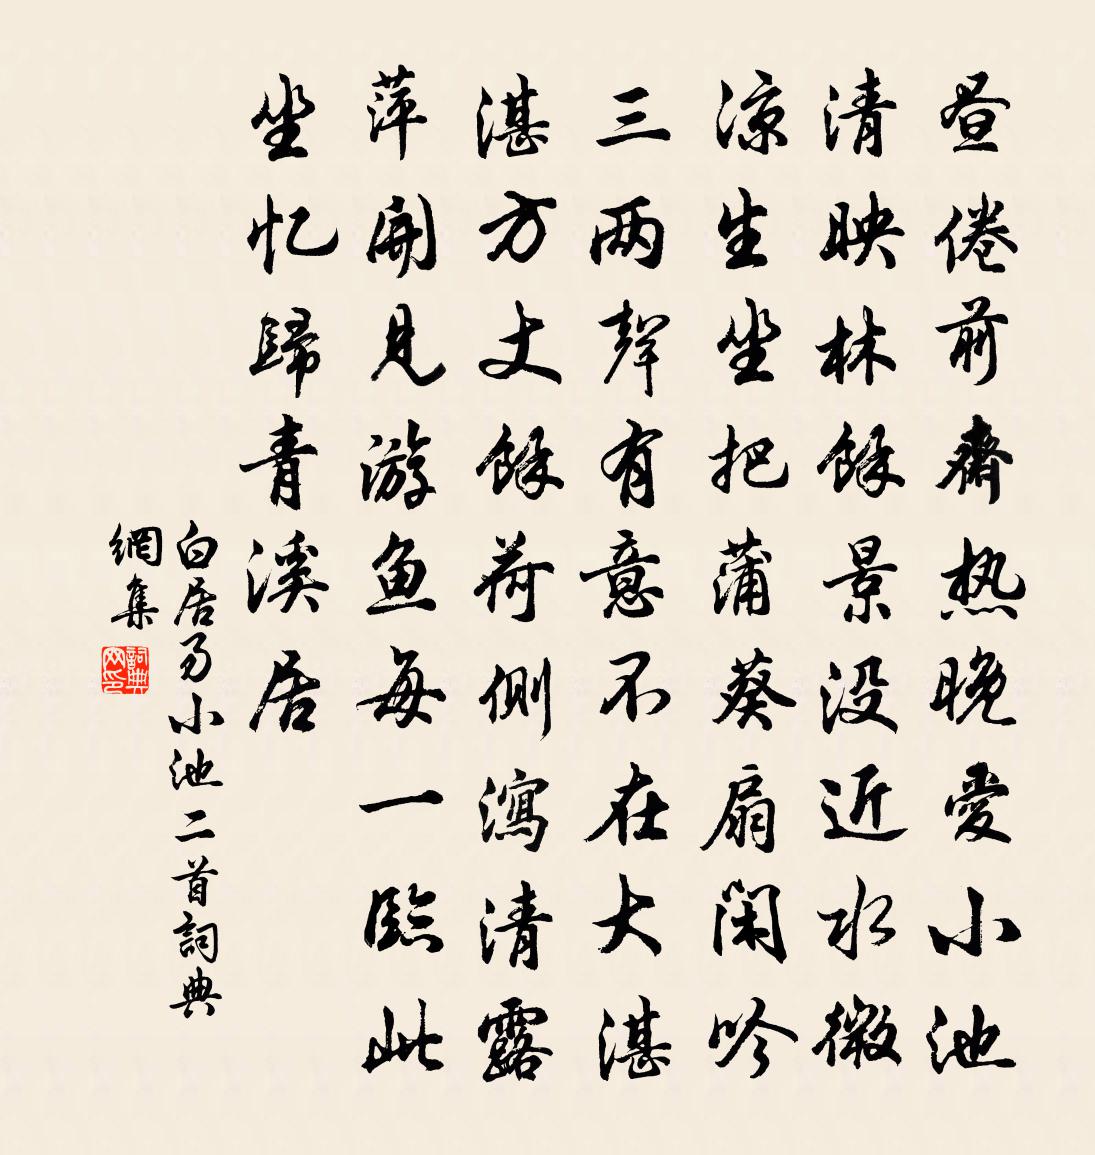 昼倦前齋热晚愛小池
清映林餘景没近水微
凉生坐把蒲葵扇闲吟
三两聲有意不在大湛
湛方丈餘荷侧瀉清露
萍開見游鱼每一臨此
坐忆歸青溪居
白居易小池二首詞典
網集
詞典
网印